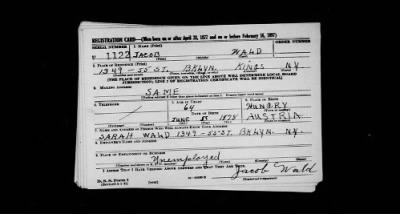 REGISTRATION CARD—(Men born on or after April 28, 1877 and on or before February 16, 1897)
SERIAL NUMBER 1. NAME (Print) ORDER NUMBER
U 1122 JACOB WALD
2. PLACE OF RESIDENCE (Print)
1349-55 ST. BKLYN. KINGS N.Y.
(THE PLACE OF RESIDENCE GIVEN ON THE LINE ABOVE WILL DETERMINE LOCAL BOARD
JURISDICTION; LINE 2 OF REGISTRATION CERTIFICATE WILL BE IDENTICAL)
3. MAILING ADDRESS
SAME
4. TELEPHONE 5. AGE IN YEARS 6. PLACE OF BIRTH
64 HUNGRY
JUNE 1878 AUSTRIA
7. NAME AND ADDRESS OF PERSON WHO WILL ALWAYS KNOW YOUR ADDRESS
SARAH WALD 1349-55 ST. BKLYN. N.Y.
8. EMPLOYER'S NAME AND ADDRESS
Unemployed
9. PLACE OF EMPLOYMENT OR BUSINESS
I AFFIRM THAT I HAVE VERIFIED ABOVE ANSWERS AND THAT THEY ARE TRUE.
Jacob Wald